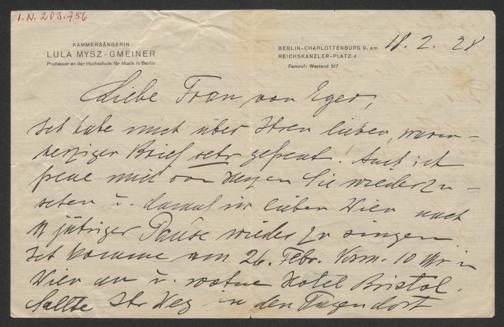 I.N. 203.756
KAMMERSÄNGERIN
LULA MYSZ-GMEINER
Professor an der Hochschule für Musik in Berlin
BERLIN-CHARLOTTENBURG 9, am 18. 2. 28
REICHSKANZLER-PLATZ 4
Fernruf: Westend 517
Liebe Frau von Eger,
Ich habe mich über Ihren lieben, warm-
herziger Brief sehr gefreut! Auch ich
freue mich von Herzen Sie wiederzu-
sehen u. darauf im lieben Wien nach
jähriger Pause wieder zu singen
Ich komme am 26. Febr. Vorm. 10 Uhr in
Wien an u. wohne Hotel Bristol.
Sollte Ihr Weg in den